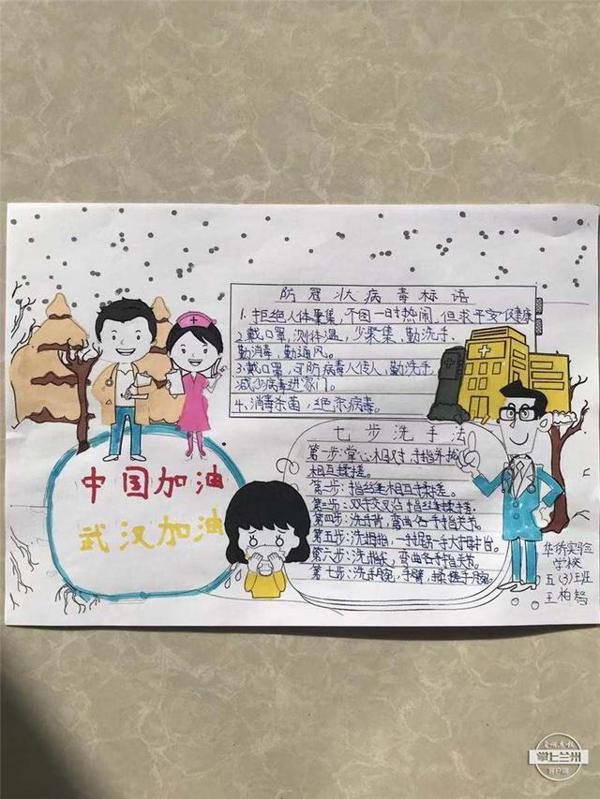 防冠状病毒标语
1、拒绝人体聚集,不图一时热闹,但求平安健康
2、戴口罩,测体温,少聚集,勤洗手,
勤消毒,勤通风。
3、戴口罩,可防病毒人传人,勤洗手,
减少病毒进家门。
4、消毒杀菌,绝杀病毒。
七步洗手法
第一步:掌心相对,手指并拢
相互揉搓。
第二步:指缝相互揉搓。
第三步:双手交叉沿指缝揉搓。
第四步:洗指背,弯曲各手指关节。
第五步:洗拇指,一手握另一手大拇指
第六步:洗指尖,弯曲各手指关节。
第七步:洗手腕,手臂,揉搓手腕。
中国加油
武汉加油
华侨实验
学校
五(3)班
王柏
掌上兰州
客户端